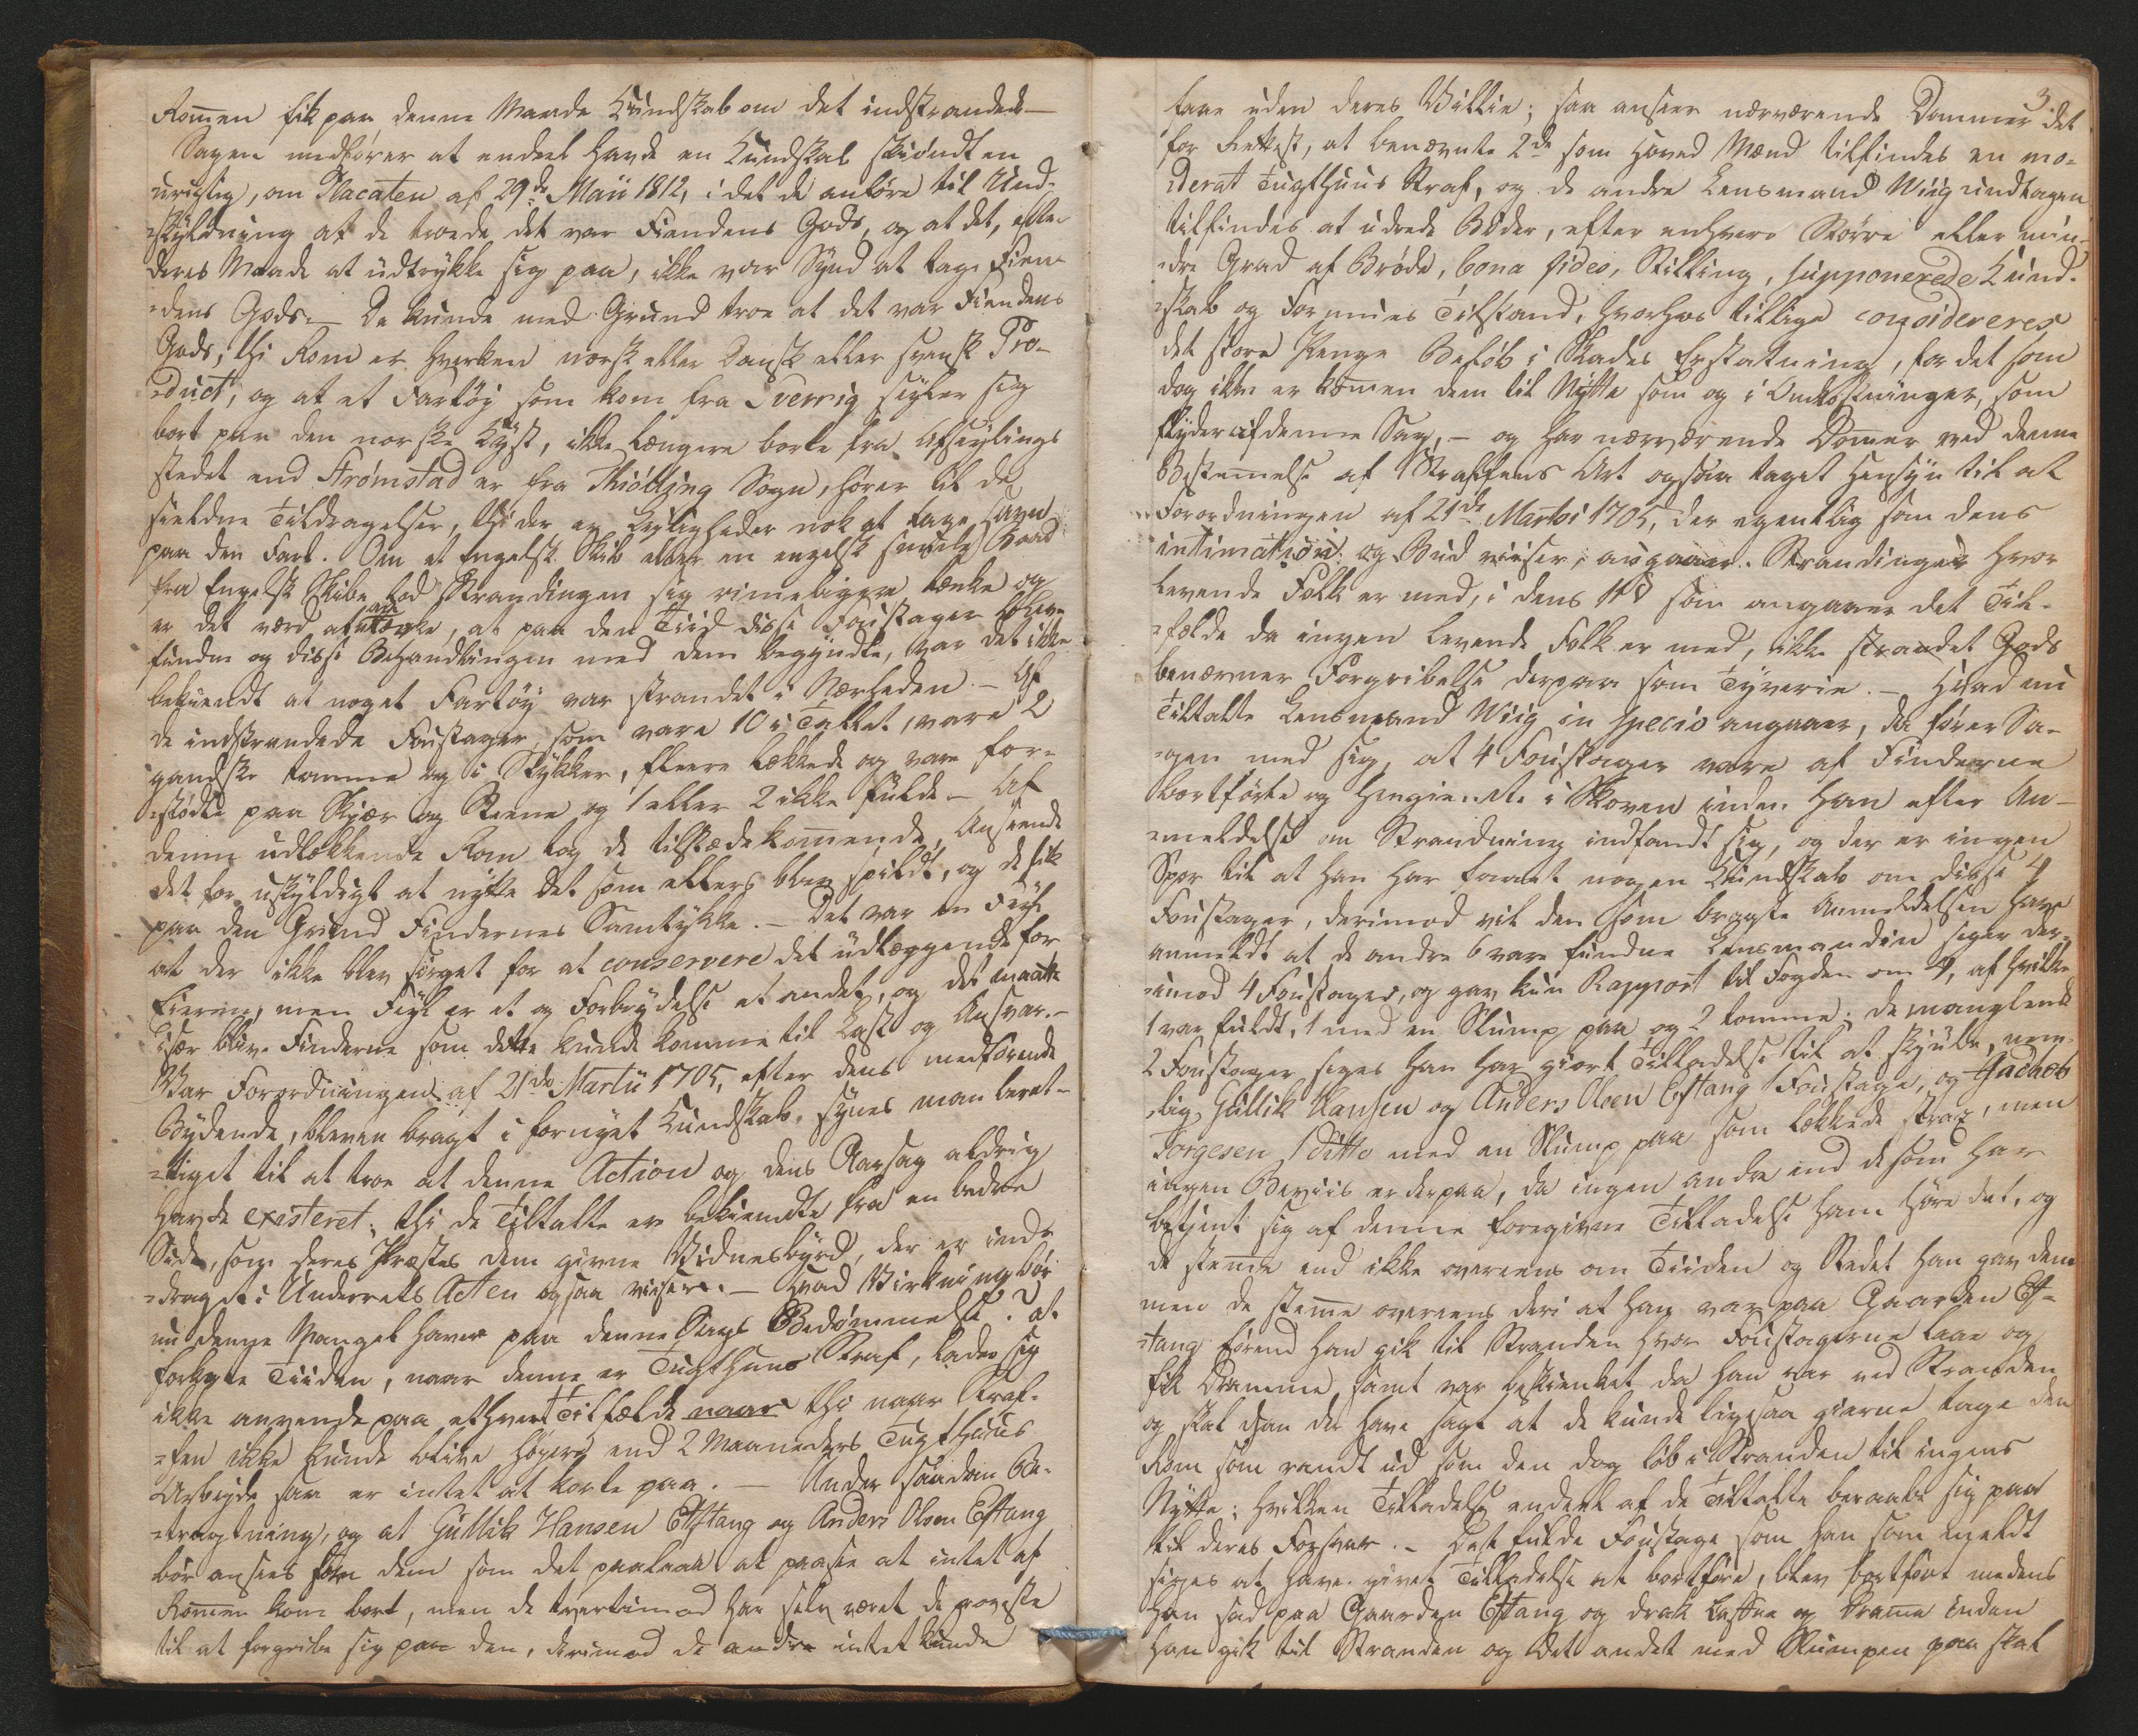 Rom̄en fik paa denne Maade Kundskab om det indstrandede —
Sagen medfører at endeel havde en Kundskab skiøndt en
urigtig, om Placaten af 29de Maii 1812, i det de anføre til Und-
skyldning at de troede det var Fiendens Gods, og at det, efter
deres Maade at udtrykke sig paa, ikke var Synd at tage Fien-
dens Gods. — De kunde med Grund troe at det var Fiendens
Gods; thi Rom er hverken norsk eller Dansk eller svensk Pro-
duct, og at et Fartøy som kom fra Sverrig sejler sig
bort paa den norske Kyst, ikke længere borte fra Afseylings
stedet end Strømstad er fra Thiølling Sogn, hører til de
sieldne Tildragelser, thi der er Leyligheder nok at tage Havn
paa den Fart. Om et Engelsk Skib eller en engelsk Baad
fra Engelsk Skibe lod Strandingen sig rimeligere tænke og
er det værd at antænke, at paa den Tiid disse Foustager bleve
fundne og disse Behandlingen med dem begyndte, var det ikke
bekiendt at noget Fartøy var strandet i Nærheden. — Af
de indstrandede Foustager, som vare 10 i Tallet, vare 2
gandske tomme og i Stykker, fleere lækkede og vare for-
stødte paa Skjær og Steene og 1 eller 2 ikke fulde — Af
denne udlækkende Rom tog de tilstædekom̄ende, Ansaaende
det for uskyldigt at nytte det som ellers blev spildt, og de fik
paa den Grund Findernes Samtykke. — Det var en Feyl
at der ikke blev sørget for at conservere det udlæggende for
Eieren, men Feyl er et og Forbrydelse et andet, og det maatte
især blive Finderne som dette kunde komme til Last og Ansvar. —
Var Forordningen af 21de Martii 1705, efter dens medførende
Bydende, bleven bragt i fornyet Kundskab, synes man beret-
tiget til at troe at denne Action og dens Aarsag aldrig
havde existeret; thi de Tiltalte er bekiendte fra en bedre
Side, som deres Præstes dem givne Vidnesbyrd, der er ind-
draget i Underrets Acten ogsaa viser. — Hvad Virkning bør
nu denne Mangel have paa denne Sags Bedømmelse? at
forkorte Tiiden, naar denne er Tugthuus Straf, lader sig
ikke anvende paa ethvert Tilfælde naar thi naar Straf-
fen ikke kunde blive høyere end 2 Maaneders Tugthuus
Arbeyde saa er intet at korte paa. — Under saadan Be-
tragtning, og at Gullik Hansen Eftang og Anders Olsen Eftang
bør ansees som dem som det paalaae at paasee at intet af
Rom̄en kom bort, men de tvertimod har selv været de groveste
til at forgribe sig paa den, derimod de andre intet kunde
3.
faae uden deres Villie; saa anseer nærværende Dommer det
for Rettest, at benævnte 2de som Hoved Mænd tilfindes en mo-
derat Tugthuus Straf, og de andre Lensmand Wiig undtagen
tilfindes at udrede Bøder, efter enhvers Større eller min-
dre Grad af Brøde, bona fides, Stilling, supponerede Kund-
skab og Formues Tilstand, hvorhos tillige consideres
det store Penge Beløb i Skades Erstatning, for det som
dog ikke er kom̄en dem til Nytte som og i Omkostninger, som
flyder af denne Sag, — og har nærværende Dom̄er ved denne
Bestem̄else af Straffens Art ogsaa taget Hensyn til at
Forordningen af 21de Martii 1705, der egentlig som dens
intimation og Bud viiser, angaaer Strandinger hvor
levende Folk er med, i dens 11 § som angaaer det Til-
fælde da ingen levende Folk er med, ikke strandet Gods
benævner Forgribelse derpaa som Tyverie. — Hvad nu
Tiltalte Lensmand Wiig in specio angaaer, da fører Sa-
gen med sig, at 4 Foustager vare af Finderne
bortførte og hengiemte i Skoven inden han efter An-
meldelse om Strandning indfandt sig, og der er ingen
Spor til at han har faaet nogen Kundskab om disse 4
Foustager, derimod vil den som bragte Anmeldelsen have
anmeldt at de andre 6 vare fundne Lensmanden siger der-
imod 4 Foustager, og gav kun Rapport til Fogden om 4, af hvilke
1 var fuldt, 1 med en Slump paa og 2 tomme; de manglende
2 Foustager siges han har giort Tilladelse til at skjule, nem-
lig Gullik Hansen og Anders Olsen Eftang 1 Foustage, og Jachob
Torgesen 1 ditto med en Slump paa som lækkede strax, men
ingen Beviis er derpaa, da ingen andre end de som har
betjent sig af denne foregivne Tilladelse ham høre det, og
de stem̄e end ikke overeens om Tiiden og Stedet han gav dem
men de stem̄e overeens deri at han var paa Gaarden Ef-
tang førend han gik til Stranden hvor Foustagerne laae og
fik Dramme samt var beskienket da han var ved Stranden
og skal han der have sagt at de kunde ligesaa gierne tage den
Rom som randt ud som den dog løb i Stranden til ingens
Nytte; hvilken Tilladelse endeel af de Tiltalte beraabe sig paa
til deres Forsvar. — Den fulde Foustage som han som meldt
siges at have givet Tilladelse at bortføre, blev bortført medens
han sad paa Gaarden Eftang og drak Caffee og Dram̄e inden
han gik til Stranden og det andet med Slumpen paa skal